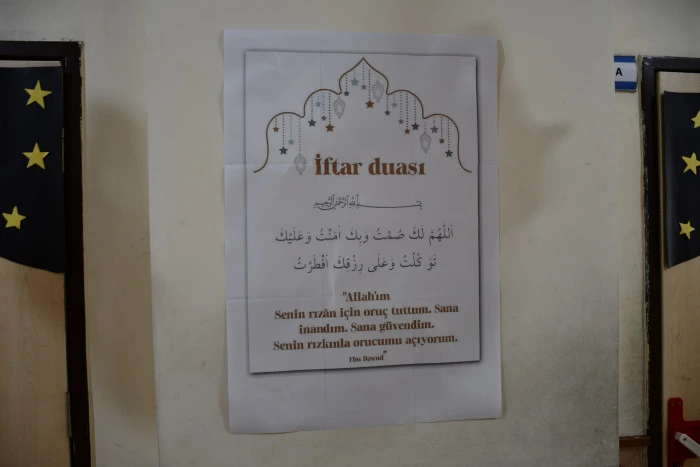 A
İftar duası
بِسْمِ اللهِ الرَّحْمٰنِ الرَّحِيمِ
اَللّٰهُمَّ لَكَ صُمْتُ وَبِكَ اٰمَنْتُ وَعَلَيْكَ
تَوَ كَّلْتُ وَعَلَى رِزْقِكَ اَفْطَرْتُ
"Allah'ım
Senin rızân için oruç tuttum. Sana
inandım. Sana güvendim.
Senin rızkınla orucumu açıyorum.
Ebu Dawud"